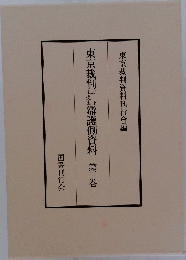 東京裁判資料刊行会編
東京裁判却下未提出辯護側資料 第 巻
国書刊行会